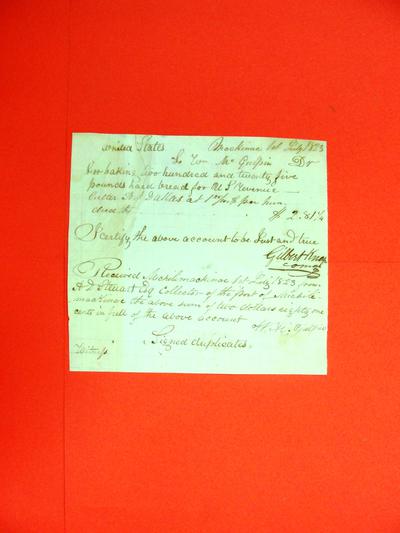 United States Mackinac 1st July 1823
To Wm McGulpin Dr
For baking two hundred and twenty five
pounds hard bread for U S Revenue
Cutter A J Dallas at 1 per hun
dred lb $ 2.81¼
I certify the above account to be Just and true
Gilbert Knapp
Received Michilimackinac 1st July 1823 from
A D Steuart Esq Collector of the port of Michili
mackinac the above sum of two dollars eighty one
cents in full of the above account
Wm McGulpin
Signed duplicates.
Witness